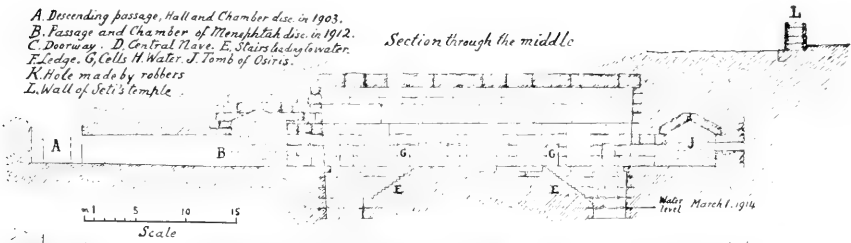 A. Descending passage, Hall and Chamber disc. in 1903.
B. Passage and Chamber of Menephtah disc. in 1912.
C. Doorway. D. Central Nave. E. Stairs leading to water.
F. Ledge. G. Cells H. Water. J. Tomb of Osiris.
K. Hole made by robbers
L. Wall of Seti's temple.
Section through the middle
L
A
B
G.
G.
J
E
E
Water level March 1. 1914
m 1 5 10 15
Scale